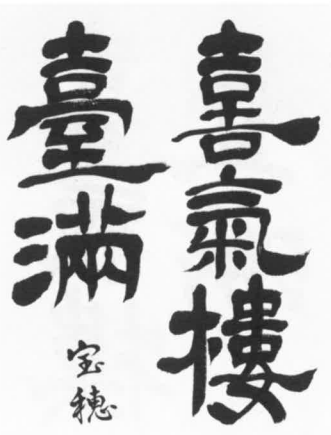 喜氣樓
臺滿
宝穂